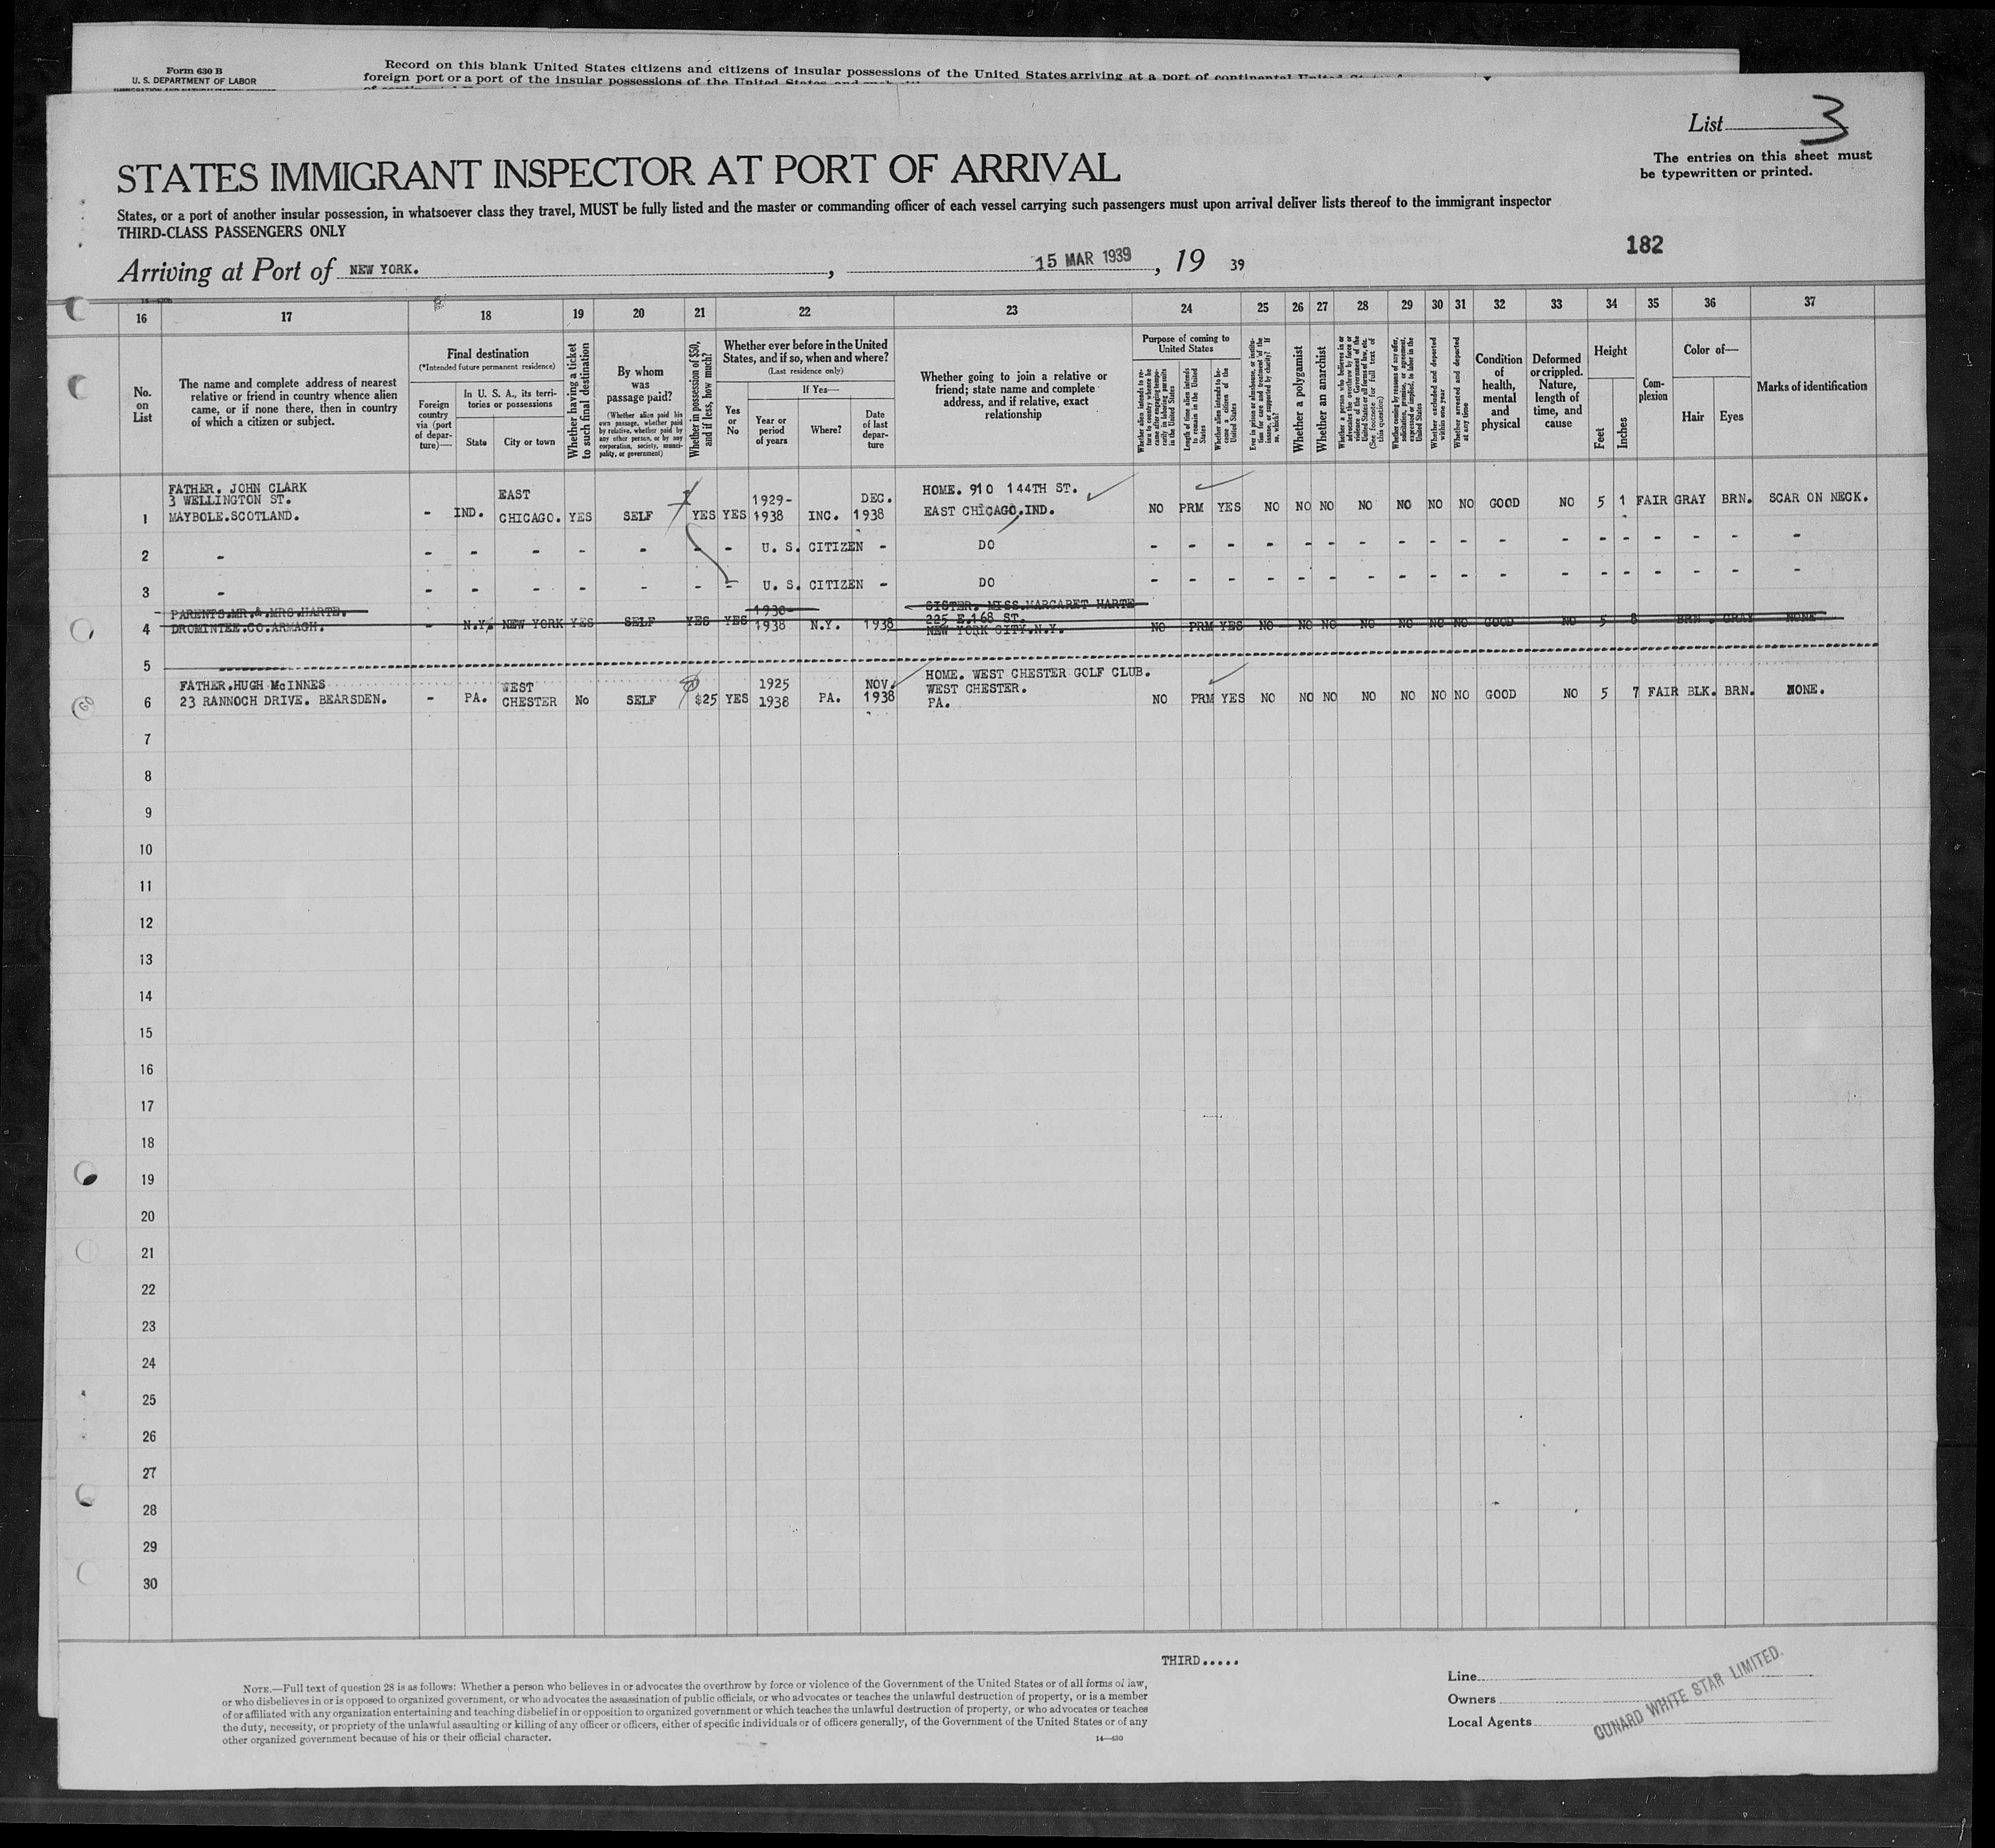 Form 630 B
U. S. DEPARTMENT OF LABOR
Record on this blank United States citizens and citizens of insular possessions of the United States arriving at a port of continental
foreign port or a port of the insular possessions of the United States
List 3
The entries on this sheet must
be typewritten or printed.
STATES IMMIGRANT INSPECTOR AT PORT OF ARRIVAL
States, or a port of another insular possession, in whatsoever class they travel, MUST be fully listed and the master or commanding officer of each vessel carrying such passengers must upon arrival deliver lists thereof to the immigrant inspector
THIRD-CLASS PASSENGERS ONLY
182
Arriving at Port of NEW YORK. , 15 MAR 1939 , 19 39
16 17 18 19 20 21 22 23 24 25 26 27 28 29 30 31 32 33 34 35 36 37
No.
on
List
The name and complete address of nearest
relative or friend in country whence alien
came, or if none there, then in country
of which a citizen or subject.
Final destination
(*Intended future permanent residence)
Foreign
country
via (port
of depar-
ture)—
In U. S. A., its terri-
tories or possessions
State City or town
Whether having a ticket
to such final destination
By whom
was
passage paid?
(Whether alien paid his
own passage, whether paid
by relative, whether paid by
any other person, or by any
corporation, society, munici-
pality, or government)
Whether in possession of $50,
and if less, how much?
Whether ever before in the United
States, and if so, when and where?
(Last residence only)
Yes
or
No
If Yes—
Year or
period
of years
Where?
Date
of last
depar-
ture
Whether going to join a relative or
friend; state name and complete
address, and if relative, exact
relationship
Purpose of coming to
United States
Whether alien intends to re-
turn to country whence he
came after engaging tempo-
rarily in laboring pursuits
in the United States
Length of time alien intends
to remain in the United
States
Whether alien intends to be-
come a citizen of the
United States
Ever in prison or almshouse, or institu-
tion for care and treatment of the
insane, or supported by charity? If
so, which?
Whether a polygamist
Whether an anarchist
Whether a person who believes in or
advocates the overthrow by force or
violence of the Government of the
United States or all forms of law, etc.
(See footnote for full text of
this question)
Whether coming by reasons of any offer,
solicitation, promise, or agreement,
expressed or implied, to labor in the
United States
Whether excluded and deported
within one year
Whether arrested and deported
at any time
Condition
of
health,
mental
and
physical
Deformed
or crippled.
Nature,
length of
time, and
cause
Height
Feet Inches
Com-
plexion
Color of—
Hair Eyes
Marks of identification
FATHER. JOHN CLARK EAST 1929- DEC. HOME. 910 144TH ST.
3 WELLINGTON ST.
1 MAYBOLE.SCOTLAND. - IND. CHICAGO. YES SELF YES YES 1938 INC. 1938 EAST CHICAGO.IND. NO PRM YES NO NO NO NO NO NO NO GOOD NO 5 1 FAIR GRAY BRN. SCAR ON NECK.
2 - - - - - - - - U. S. CITIZEN - DO - - - - - - - - - - - - - - - - - -
3 - - - - - - - - U. S. CITIZEN - DO - - - - - - - - - - - - - - - - - -
PARENTS.MR.&.MRS.HARTE. 1930- SISTER. MISS.MARGARET HARTE
225 E.168 ST.
4 DROMINTEE.CO.ARMAGH. - N.Y. NEW YORK YES SELF YES YES 1938 N.Y. 1938 NEW YORK CITY.N.Y. NO PRM YES NO NO NO NO NO NO NO GOOD NO 5 8 BRN. GRAY NONE
5
FATHER.HUGH McINNES WEST 1925 NOV. HOME. WEST CHESTER GOLF CLUB.
WEST CHESTER.
6 23 RANNOCH DRIVE. BEARSDEN. - PA. CHESTER No SELF $25 YES 1938 PA. 1938 PA. NO PRM YES NO NO NO NO NO NO NO GOOD NO 5 7 FAIR BLK. BRN. NONE.
7
8
9
10
11
12
13
14
15
16
17
18
19
20
21
22
23
24
25
26
27
28
29
30
THIRD.....
NOTE.—Full text of question 28 is as follows: Whether a person who believes in or advocates the overthrow by force or violence of the Government of the United States or of all forms of law,
or who disbelieves in or is opposed to organized government, or who advocates the assassination of public officials, or who advocates or teaches the unlawful destruction of property, or is a member
of or affiliated with any organization entertaining and teaching disbelief in or opposition to organized government or which teaches the unlawful destruction of property, or who advocates or teaches
the duty, necessity, or propriety of the unlawful assaulting or killing of any officer or officers, either of specific individuals or of officers generally, of the Government of the United States or of any
other organized government because of his or their official character.
14—430
Line
Owners
Local Agents
CUNARD WHITE STAR LIMITED.